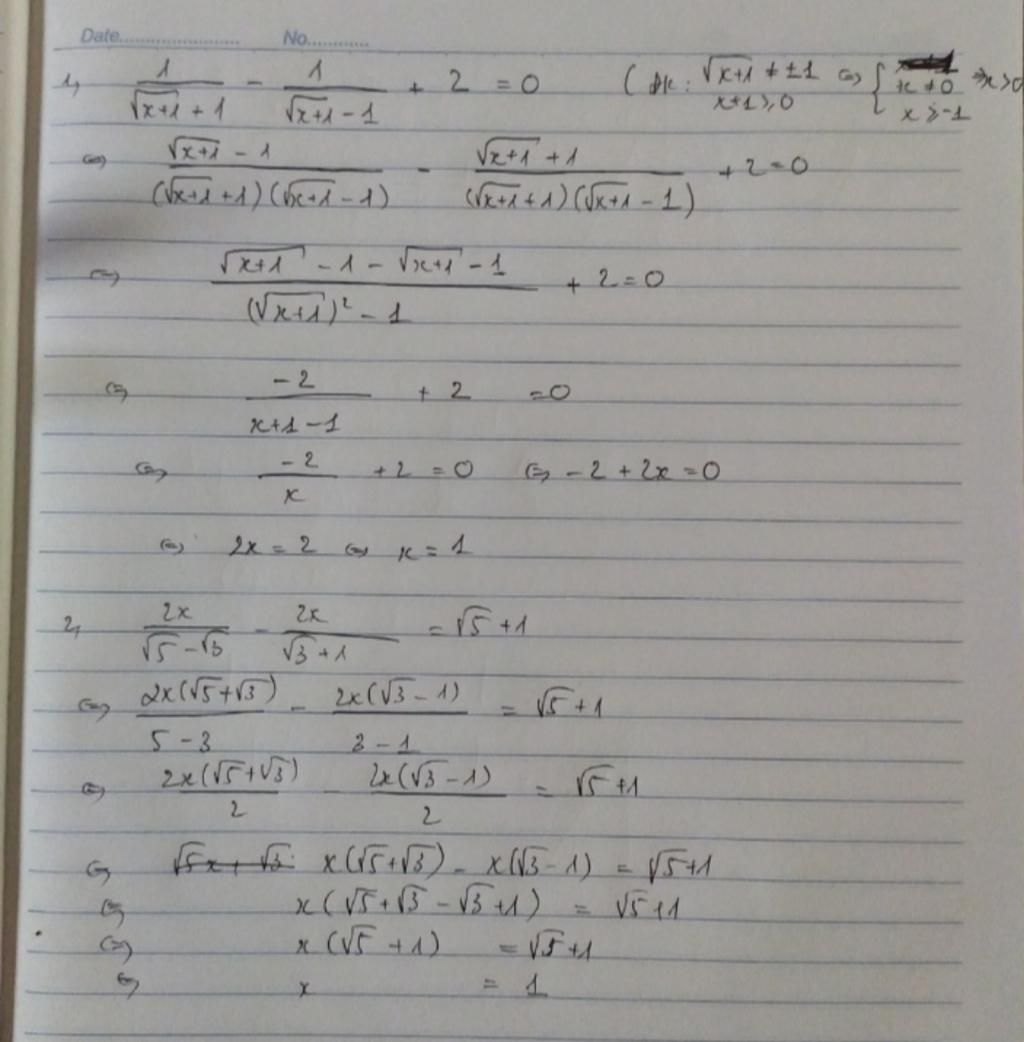 Date........................ No............
1, 1/(√(x+1) + 1) - 1/(√(x+1) - 1) + 2 = 0 ( đk: √(x+1) ≠ ±1 x+1 ≥ 0 ⇔ { x ≠ 0 x ≥ -1 ⇒ x > 0
⇔ (√(x+1) - 1)/((√(x+1) + 1)(√(x+1) - 1)) - (√(x+1) + 1)/((√(x+1) + 1)(√(x+1) - 1)) + 2 = 0
⇔ (√(x+1) - 1 - √(x+1) - 1)/((√(x+1))² - 1) + 2 = 0
⇔ -2/(x+1-1) + 2 = 0
⇔ -2/x + 2 = 0 ⇔ -2 + 2x = 0
⇔ 2x = 2 ⇔ x = 1
2, 2x/(√5 - √3) - 2x/(√3 + 1) = √5 + 1
⇔ 2x(√5 + √3)/(5 - 3) - 2x(√3 - 1)/(3 - 1) = √5 + 1
⇔ 2x(√5 + √3)/2 - 2x(√3 - 1)/2 = √5 + 1
⇔ x(√5 + √3) - x(√3 - 1) = √5 + 1
⇔ x(√5 + √3 - √3 + 1) = √5 + 1
⇔ x(√5 + 1) = √5 + 1
⇔ x = 1